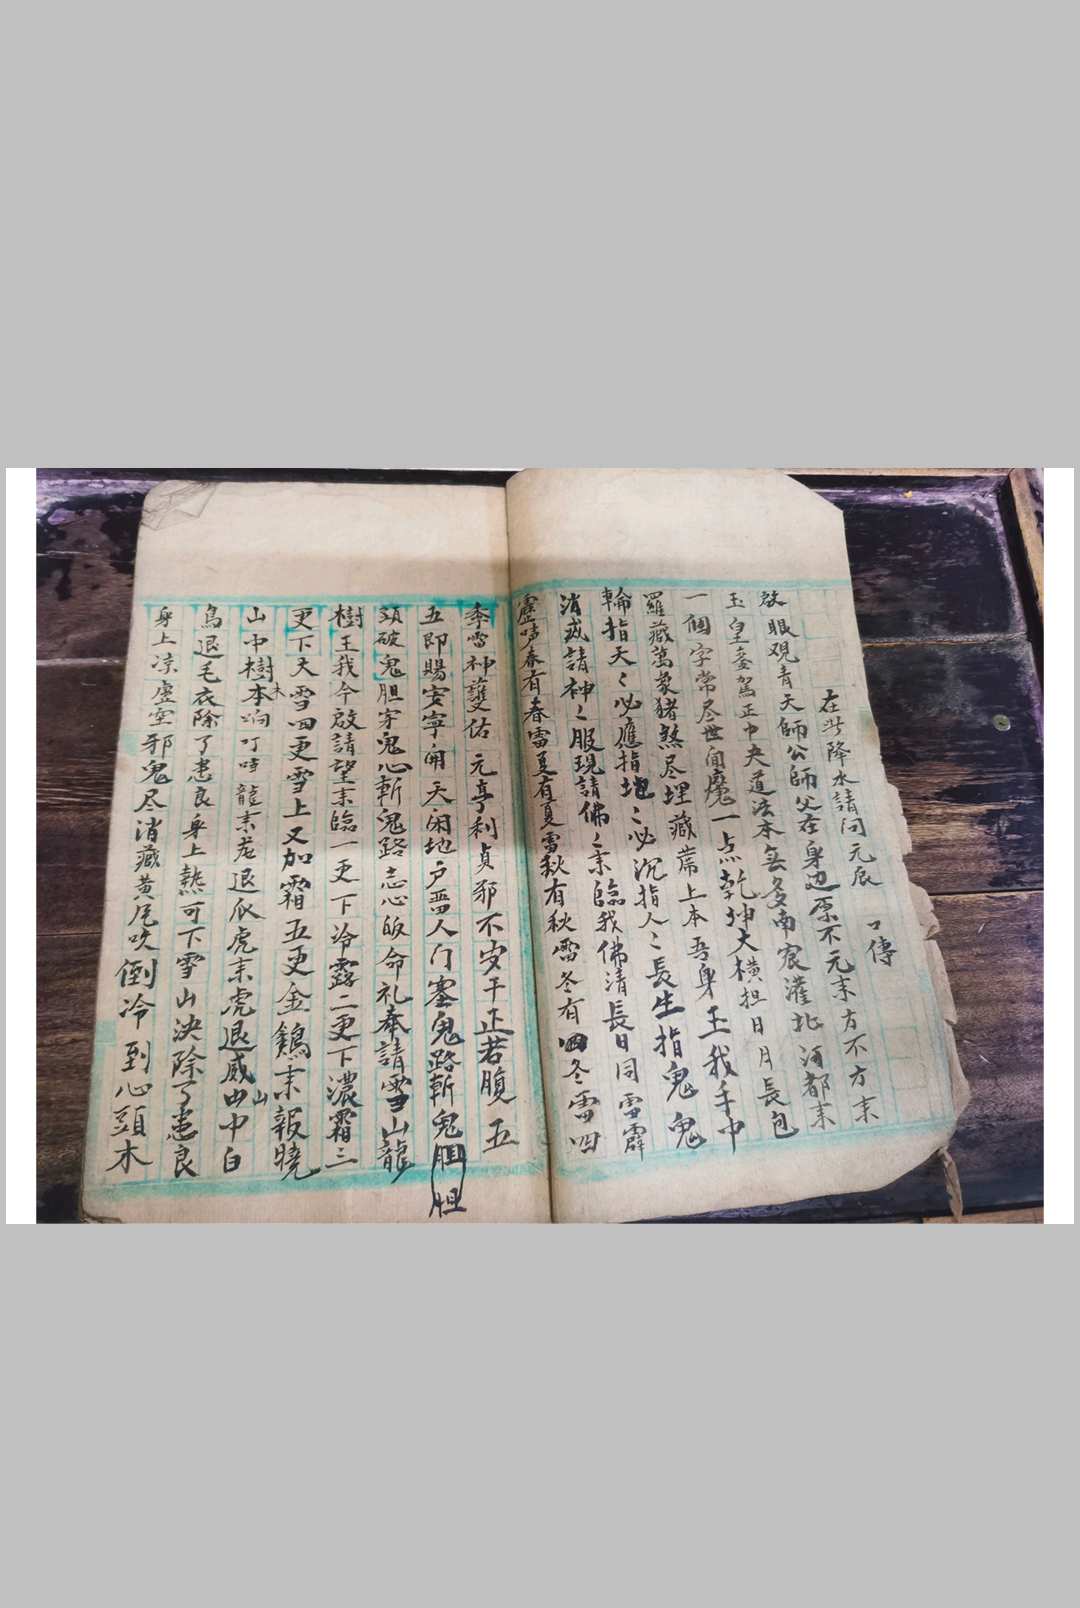 口傳
在此降水請问元辰
啟眼观青天師公師父在身边原不元来方不方来
玉皇金駕正中央道法本無多南宸灌北河都来
一個字常尽世间魔一点乾坤大横担日月長包
羅藏萬象猪煞尽埋藏蓆上本吾身玉我手中
輪指天〻必應指地〻必沉指人〻長生指鬼鬼
消灭請神〻服現請佛〻来臨我佛清長日同雪霹
靂声春有春雷夏有夏雷秋有秋雷冬有冬雷四
季雷神護佑元亨利貞邪不安干正若腹五
五即賜安寧開天闲地户 人门塞鬼路斬鬼胆
頭破鬼胆穿鬼心斬鬼路志心皈命礼奉請雪山龍
樹王我今啟請望来臨一更下冷露二更下濃霜三
更下大雪四更雪上又加霜五更金鷄来報曉
山中樹木响叮呤龍来龙退爪虎来虎退威山中白
鳥退毛衣除了患良身上熱可下雪山決除了患良
身上凉虚空邪鬼尽消藏黄尾吹倒冷到心頭木